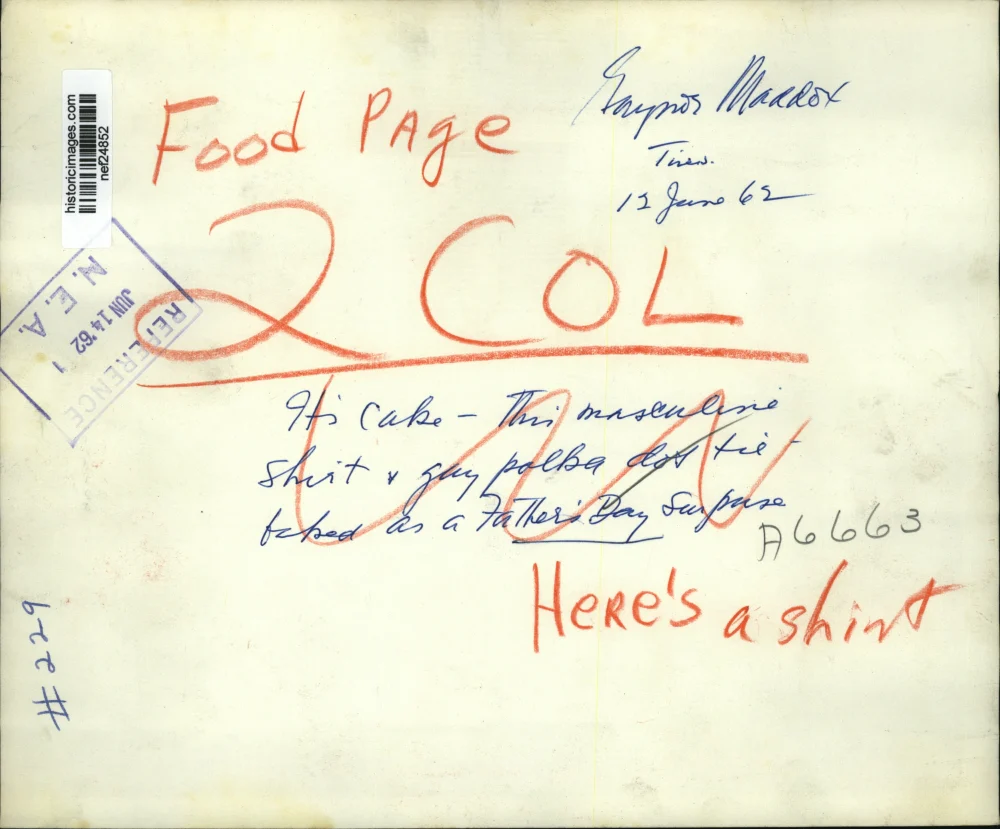 historicimages.com
nef24852
Food Page
Gaynor Maddox
Tues.
12 June 62
2 COL
REFERENCE
JUN 14 '62
N. E. A.
It's Cake – This masculine
shirt & gay polka dot tie
baked as a Father's Day surprise
A6663
Here's a shirt
#229